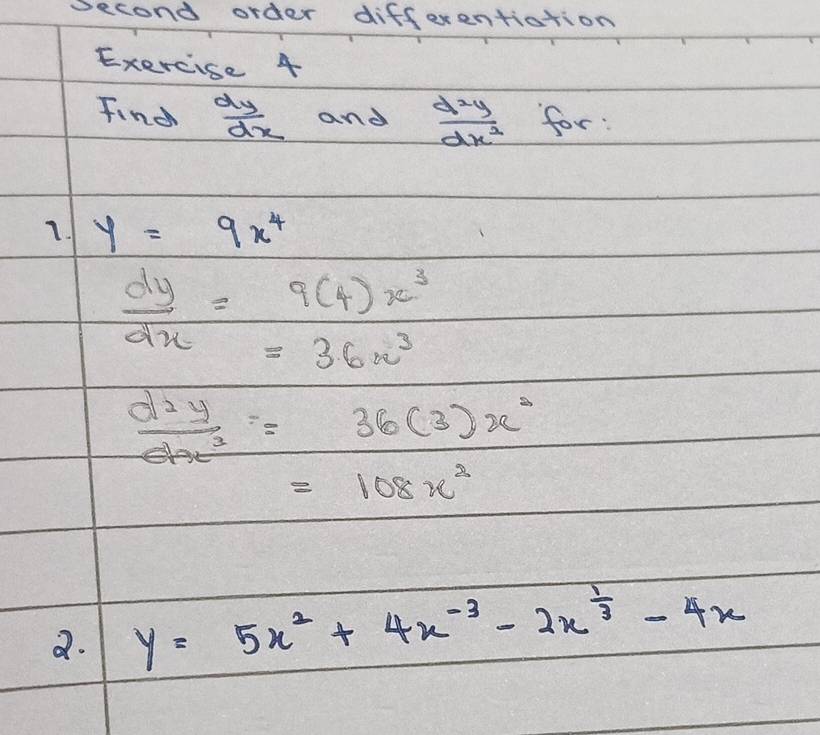 Second order differentiation
Exercise 4
Find dy/dx and d²y/dx² for:
1. y = 9x⁴
dy/dx = 9(4)x³
= 36x³
d²y/dx² = 36(3)x²
= 108x²
2. y = 5x² + 4x⁻³ - 2x^(1/3) - 4x